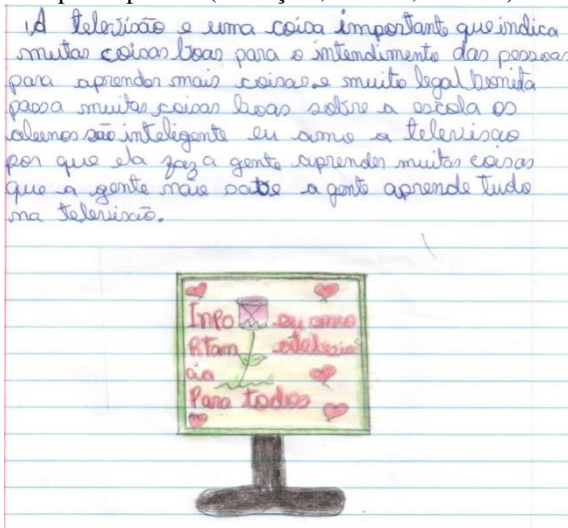 A televisão e uma coisa importante que indica
muitas coisas boas para o intendimento das pessoas
para aprender mais coisas, e muito legal bonita
passa muitas coisas boas sobre a escola os
alunos são inteligente eu amo a televisao
por que ela faz a gente aprender muitas coisas
que a gente não sabe a gente aprende tudo
na televisão.
Inpo eu amo
Rtam
cia
Para todos